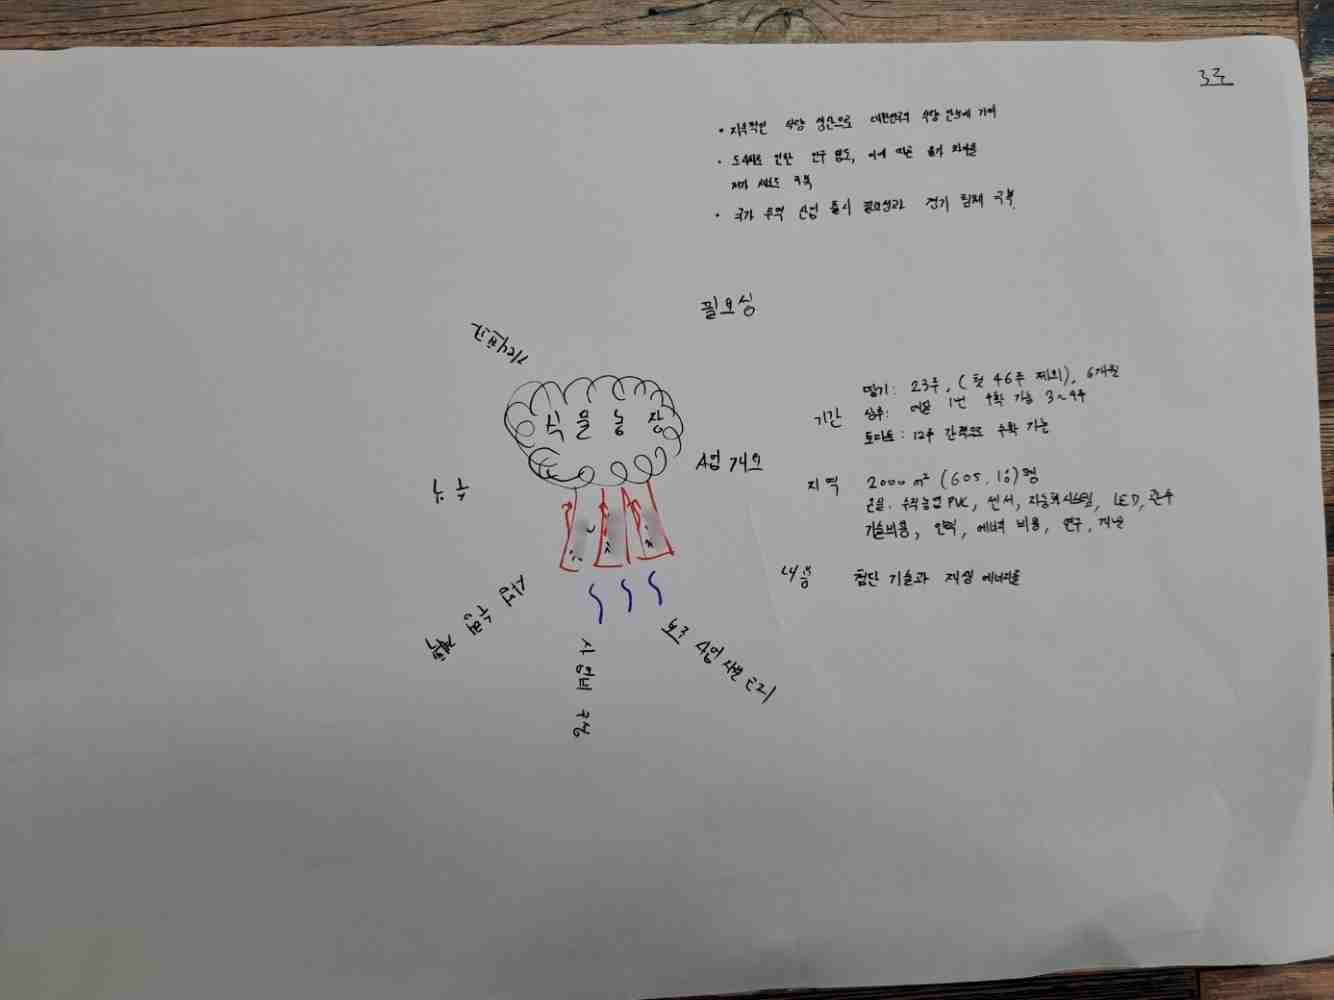 3주
• 지속적인 식량 생산으로 대한민국 식량 안보에 기여
• 도시화로 인한 인구 밀도, 이에 따른
• 국가 무역 산업 출시 필요성과 경기 침체 극복
필요성
기대효과
식물농장
사업 개요
기간
딸기: 23주, (첫 46주 제외), 6개월
상추: 매달 1번 수확 가능 3~4주
토마토: 12주 간격으로 수확 가능
지역 2000 m² (605.)평
온실, 수직농업 PVC, 센서, 자동화시스템, LED, 관수
기술비용, 인력, 에너지 비용, 연구, 재난
내용 첨단 기술과 재생 에너지를
사업 추진 계획
사업비 구성
보조 사업 시나리오